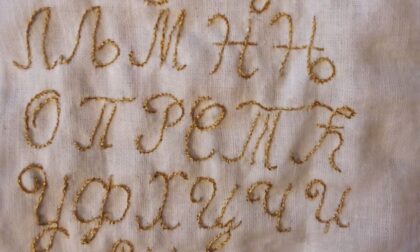 Л Љ М Н Њ
О П Р С Т Ћ
У Ф Х Ц Ч Џ